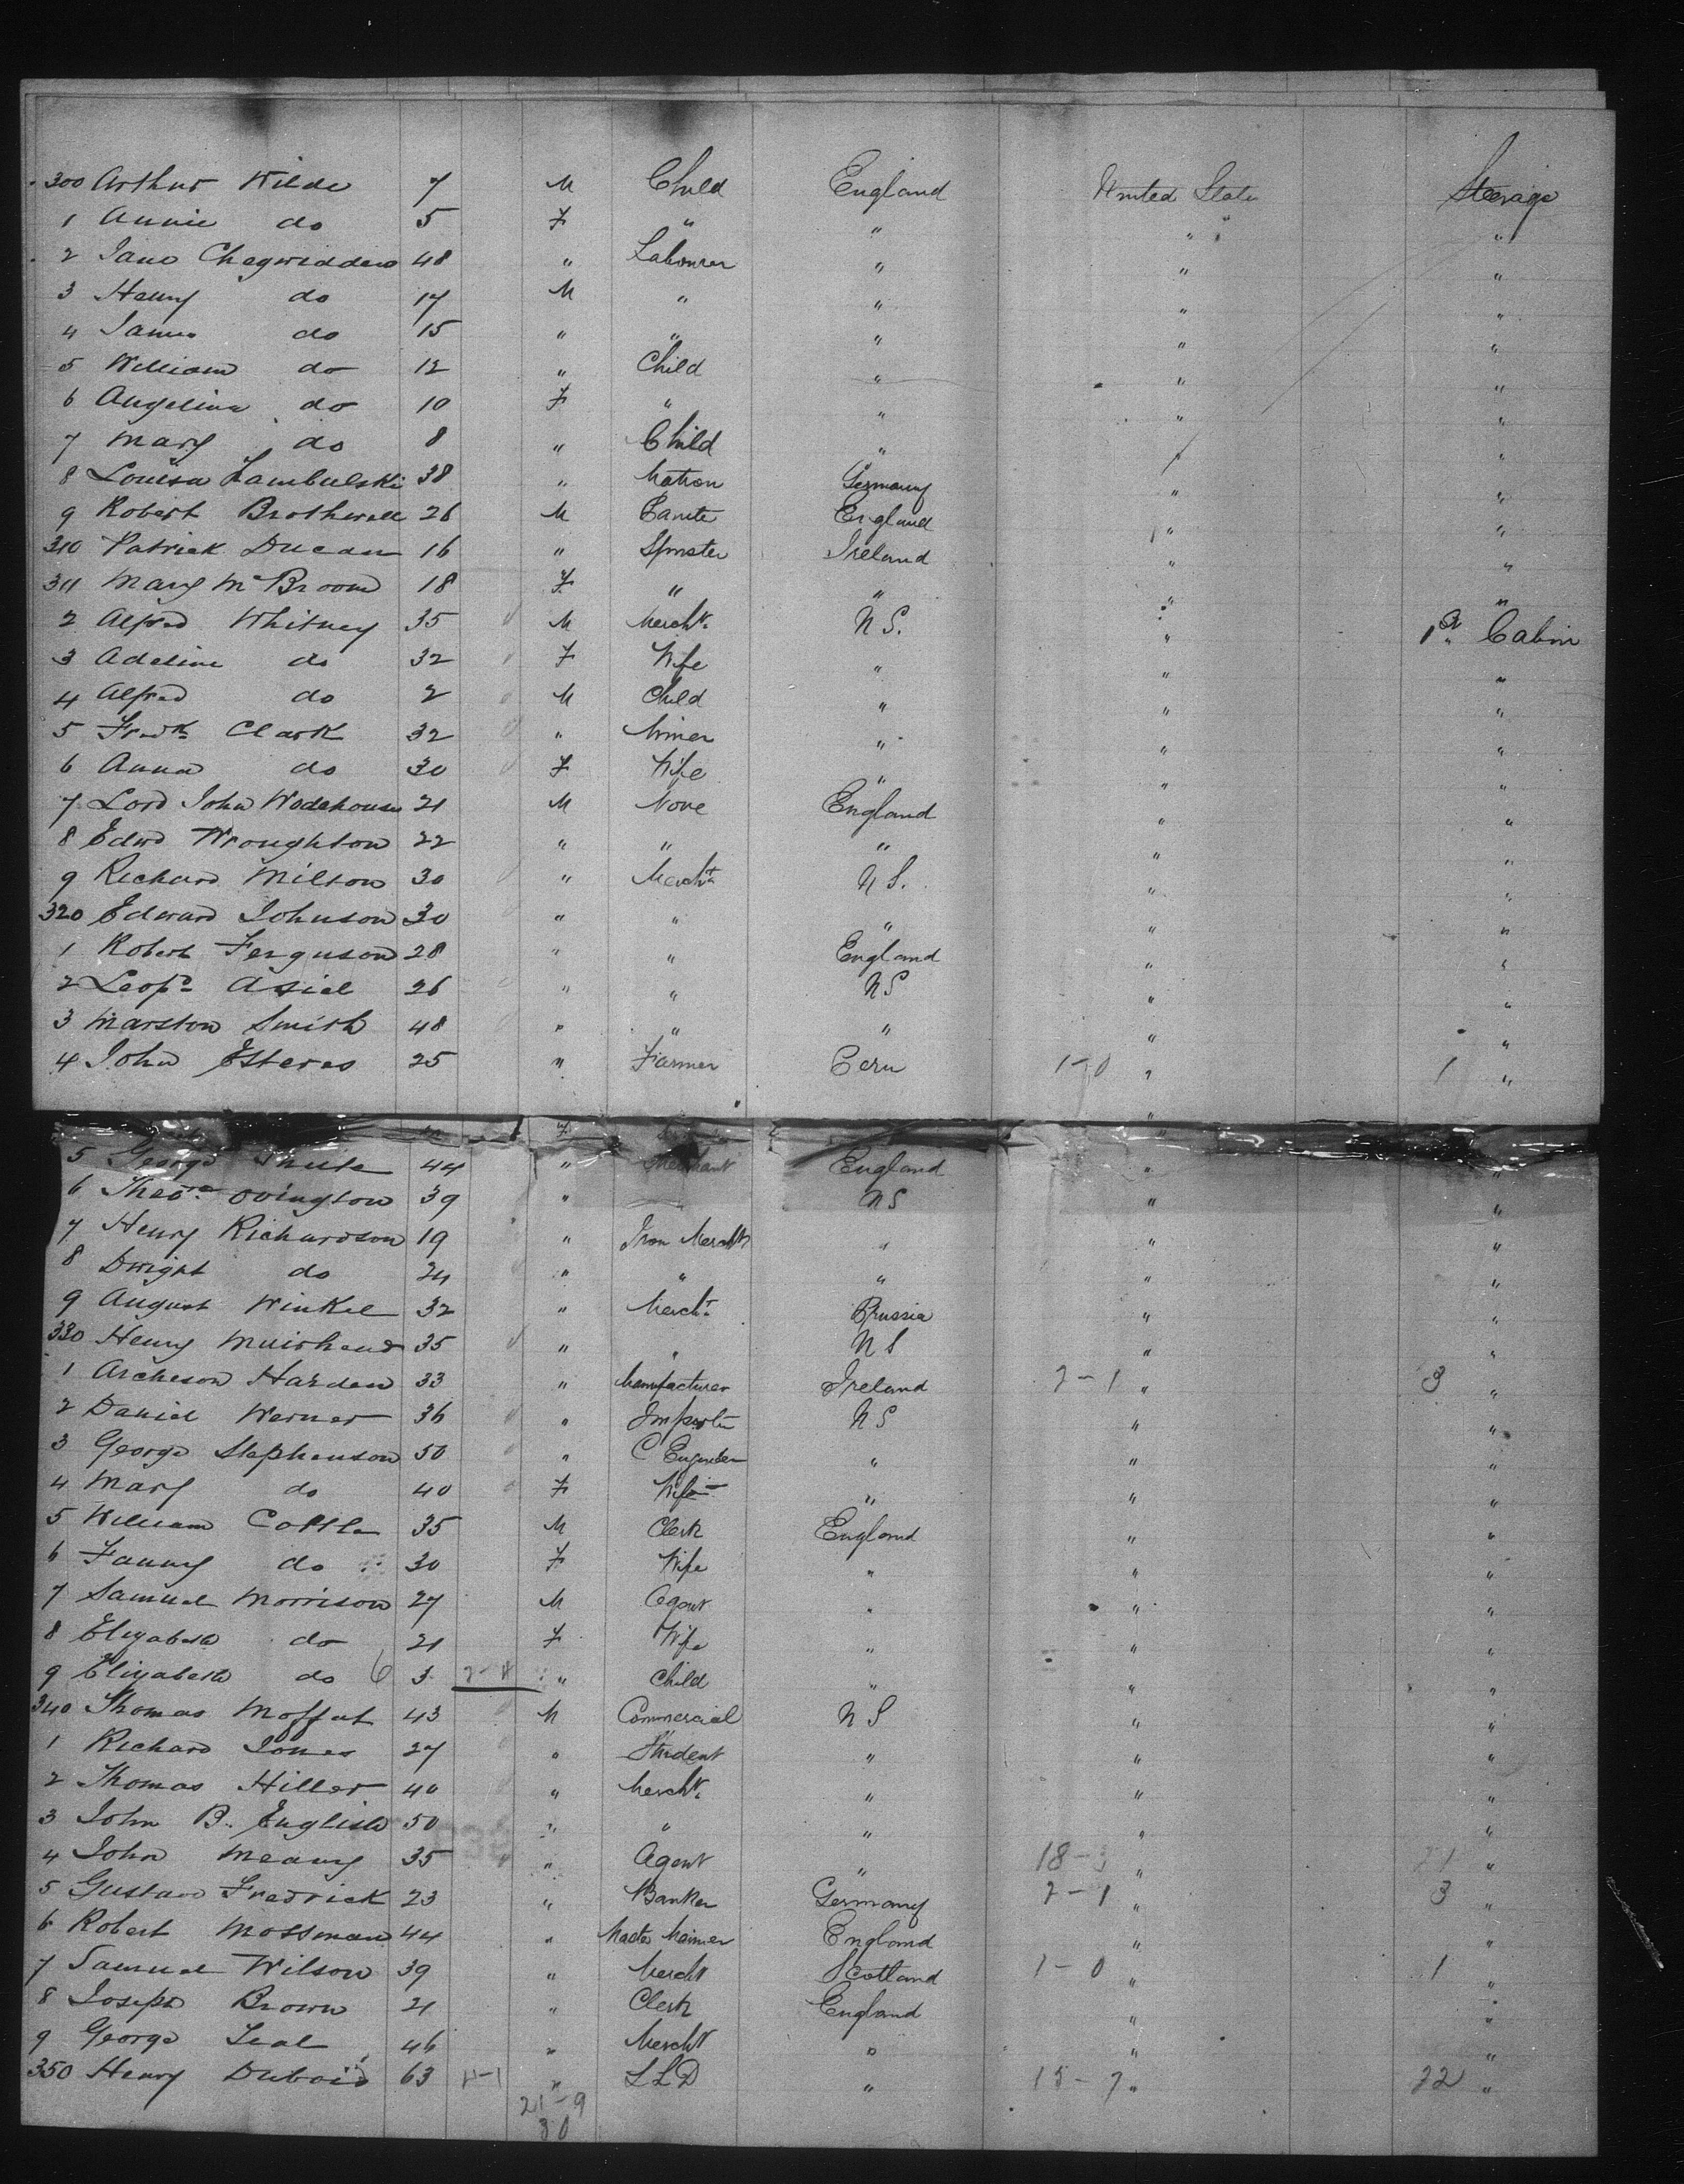 300 Arthur Wilde 7 M Child England United State Steerage
1 Annie do 5 F " " " "
2 Jane Chegwidden 48 " Labourer " " "
3 Henry do 17 M " " " "
4 James do 15 " " " " "
5 William do 12 " Child " " "
6 Angelina do 10 F " " " "
7 Mary do 8 " Child " "
8 Louisa Zambulski 38 " Matron Germany " "
9 Robert Brothwell 26 M England " "
310 Patrick Ducan 16 " Spinster Ireland " "
311 Mary McBroom 18 F " " " "
2 Alfred Whitney 35 M Mercht. U S. " 1st Cabin
3 Adeline do 32 F Wife " " "
4 Alfred do 2 M Child " " "
5 Fredk Clark 32 " Miner " " "
6 Anna do 30 F Wife " " "
7 Lord John Wodehouse 21 M None England " "
8 Edwd Wroughton 22 " " " " "
9 Richard Milton 30 " Mercht U S. " "
320 Edward Johnson 30 " " " " "
1 Robert Ferguson 28 " " England " "
2 Leopd Asiel 26 " " U S " "
3 Marston Smith 48 " " " " "
4 John Esteres 25 " Farmer Peru 1-0 " 1 "
5 George 44 " Merchant England " "
6 Theo. Ovington 39 " U S " "
7 Henry Richardson 19 " Iron Mercht " " "
8 Dwight do 24 " " " " "
9 August Winkel 32 " Mercht Prussia " "
330 Henry Muirhead 35 " " U S " "
1 Archeson Harden 33 " Manufacturer Ireland 2-1 " 3 "
2 Daniel Werner 36 " Importer U S " "
3 George Stephenson 50 " C Engineer " " "
4 Mary do 40 F Wife " " "
5 William Cottle 35 M Clerk England " "
6 Fanny do 30 F Wife " " "
7 Samuel Morrison 27 M Agent " " "
8 Elizabeth do 21 F Wife " " "
9 Elizabeth do 6 3 " Child " " "
340 Thomas Moffat 43 M Commercial U S " "
1 Richard Jones 27 " Student " " "
2 Thomas Hiller 40 " Mercht. " " "
3 John B. English 50 " " " " "
4 John Meany 35 " Agent " 18-3 " 21 "
5 Gustav Fredrick 23 " Banker Germany 2-1 " 3 "
6 Robert Mossman 44 " Master Mariner England " "
7 Samuel Wilson 39 " Mercht Scotland 1-0 " 1 "
8 Joseph Brown 21 " Clerk England " "
9 George Teal 46 " Mercht " " "
350 Henry Dubois 63 " LLD " 15-7 " 22 "
21-9
30